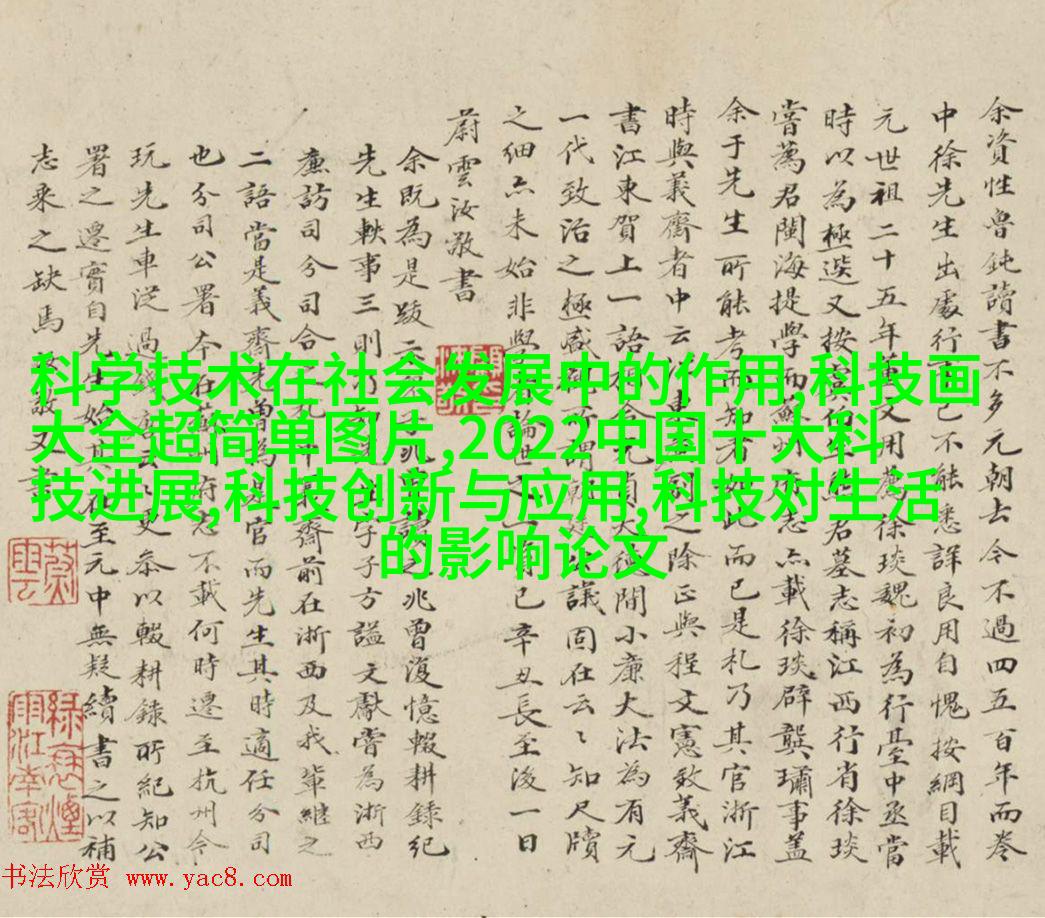 余資性魯鈍讀書不多元朝去今不過四五百年而卷
中徐先生出處行
己不能悉詳良用自愧按綱目載
元世祖二十五年
文用薦徐琰魏初為行臺中丞當
時以為極選又按
君墓志稱江西行省徐琰
嘗薦君閩海提學
志亦載徐琰辟龔璛事蓋
余于先生所能考而知者
如此而已是札乃其官浙江
時與義齋者中云
之除正與程文憲效義齋
書江東賀上一語
大德間小廉大法為有元
一代致治之極盛
議固在云云知尺牘
之細亦未始非學
論世之一
已辛丑長至後一日
蔚雲汝敬書
余既為是跋
兆曾復憶輟耕錄紀
先生軼事三則
子方謚文獻嘗為浙西
廉訪司分司合
齋前在浙西及我輩繼之
二語當是義齋先曾為
官而先生其時適任分司
也分司公署本在蘇州府志不載何時遷至杭州今
玩先生車從過
更參以輟耕錄所紀知公
署之遷實自先生始其
在至元中無疑續書之以補
志乘之缺焉
敬又書
科学技术在社会发展中的作用,科技画
大全超简单图片,2022中国十大科
技进展,科技创新与应用,科技对生活
的影响论文
书法欣赏 www.yac8.com